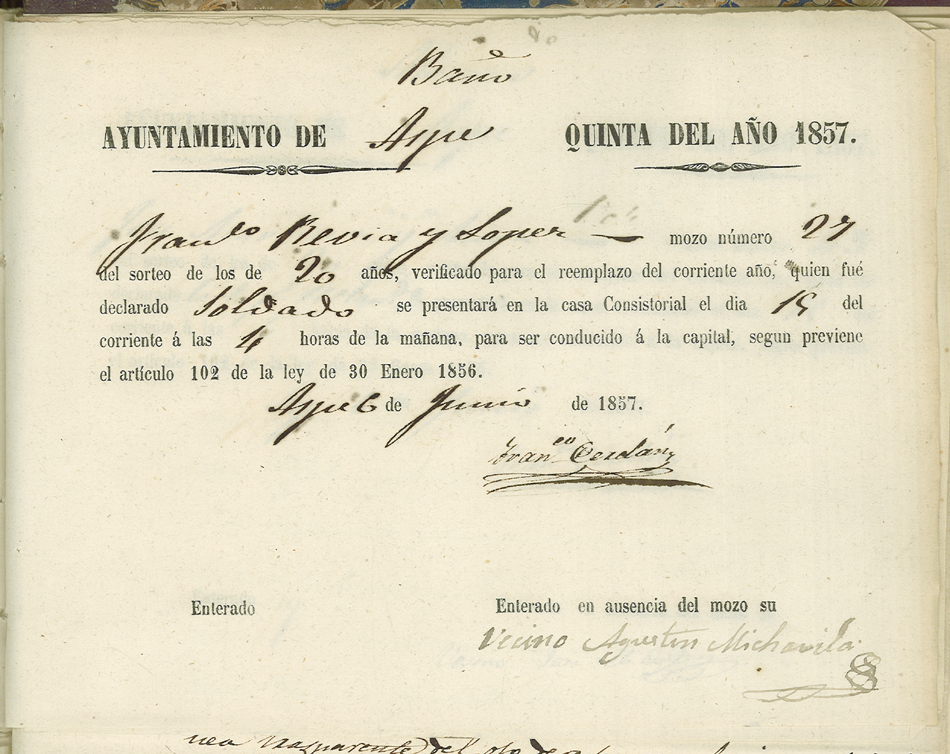 Baño
AYUNTAMIENTO DE Aspe QUINTA DEL AÑO 1857.
Revia y Lopez — mozo número 27
del sorteo de los de 20 años, verificado para el reemplazo del corriente año, quien fué
declarado Soldado se presentará en la casa Consistorial el dia 15 del
corriente á las 4 horas de la mañana, para ser conducido á la capital, segun previene
el artículo 102 de la ley de 30 Enero 1856.
Aspe 6 de Junio de 1857.
Fran.co Cerdán
Enterado Enterado en ausencia del mozo su
Vecino Agustin Michavila